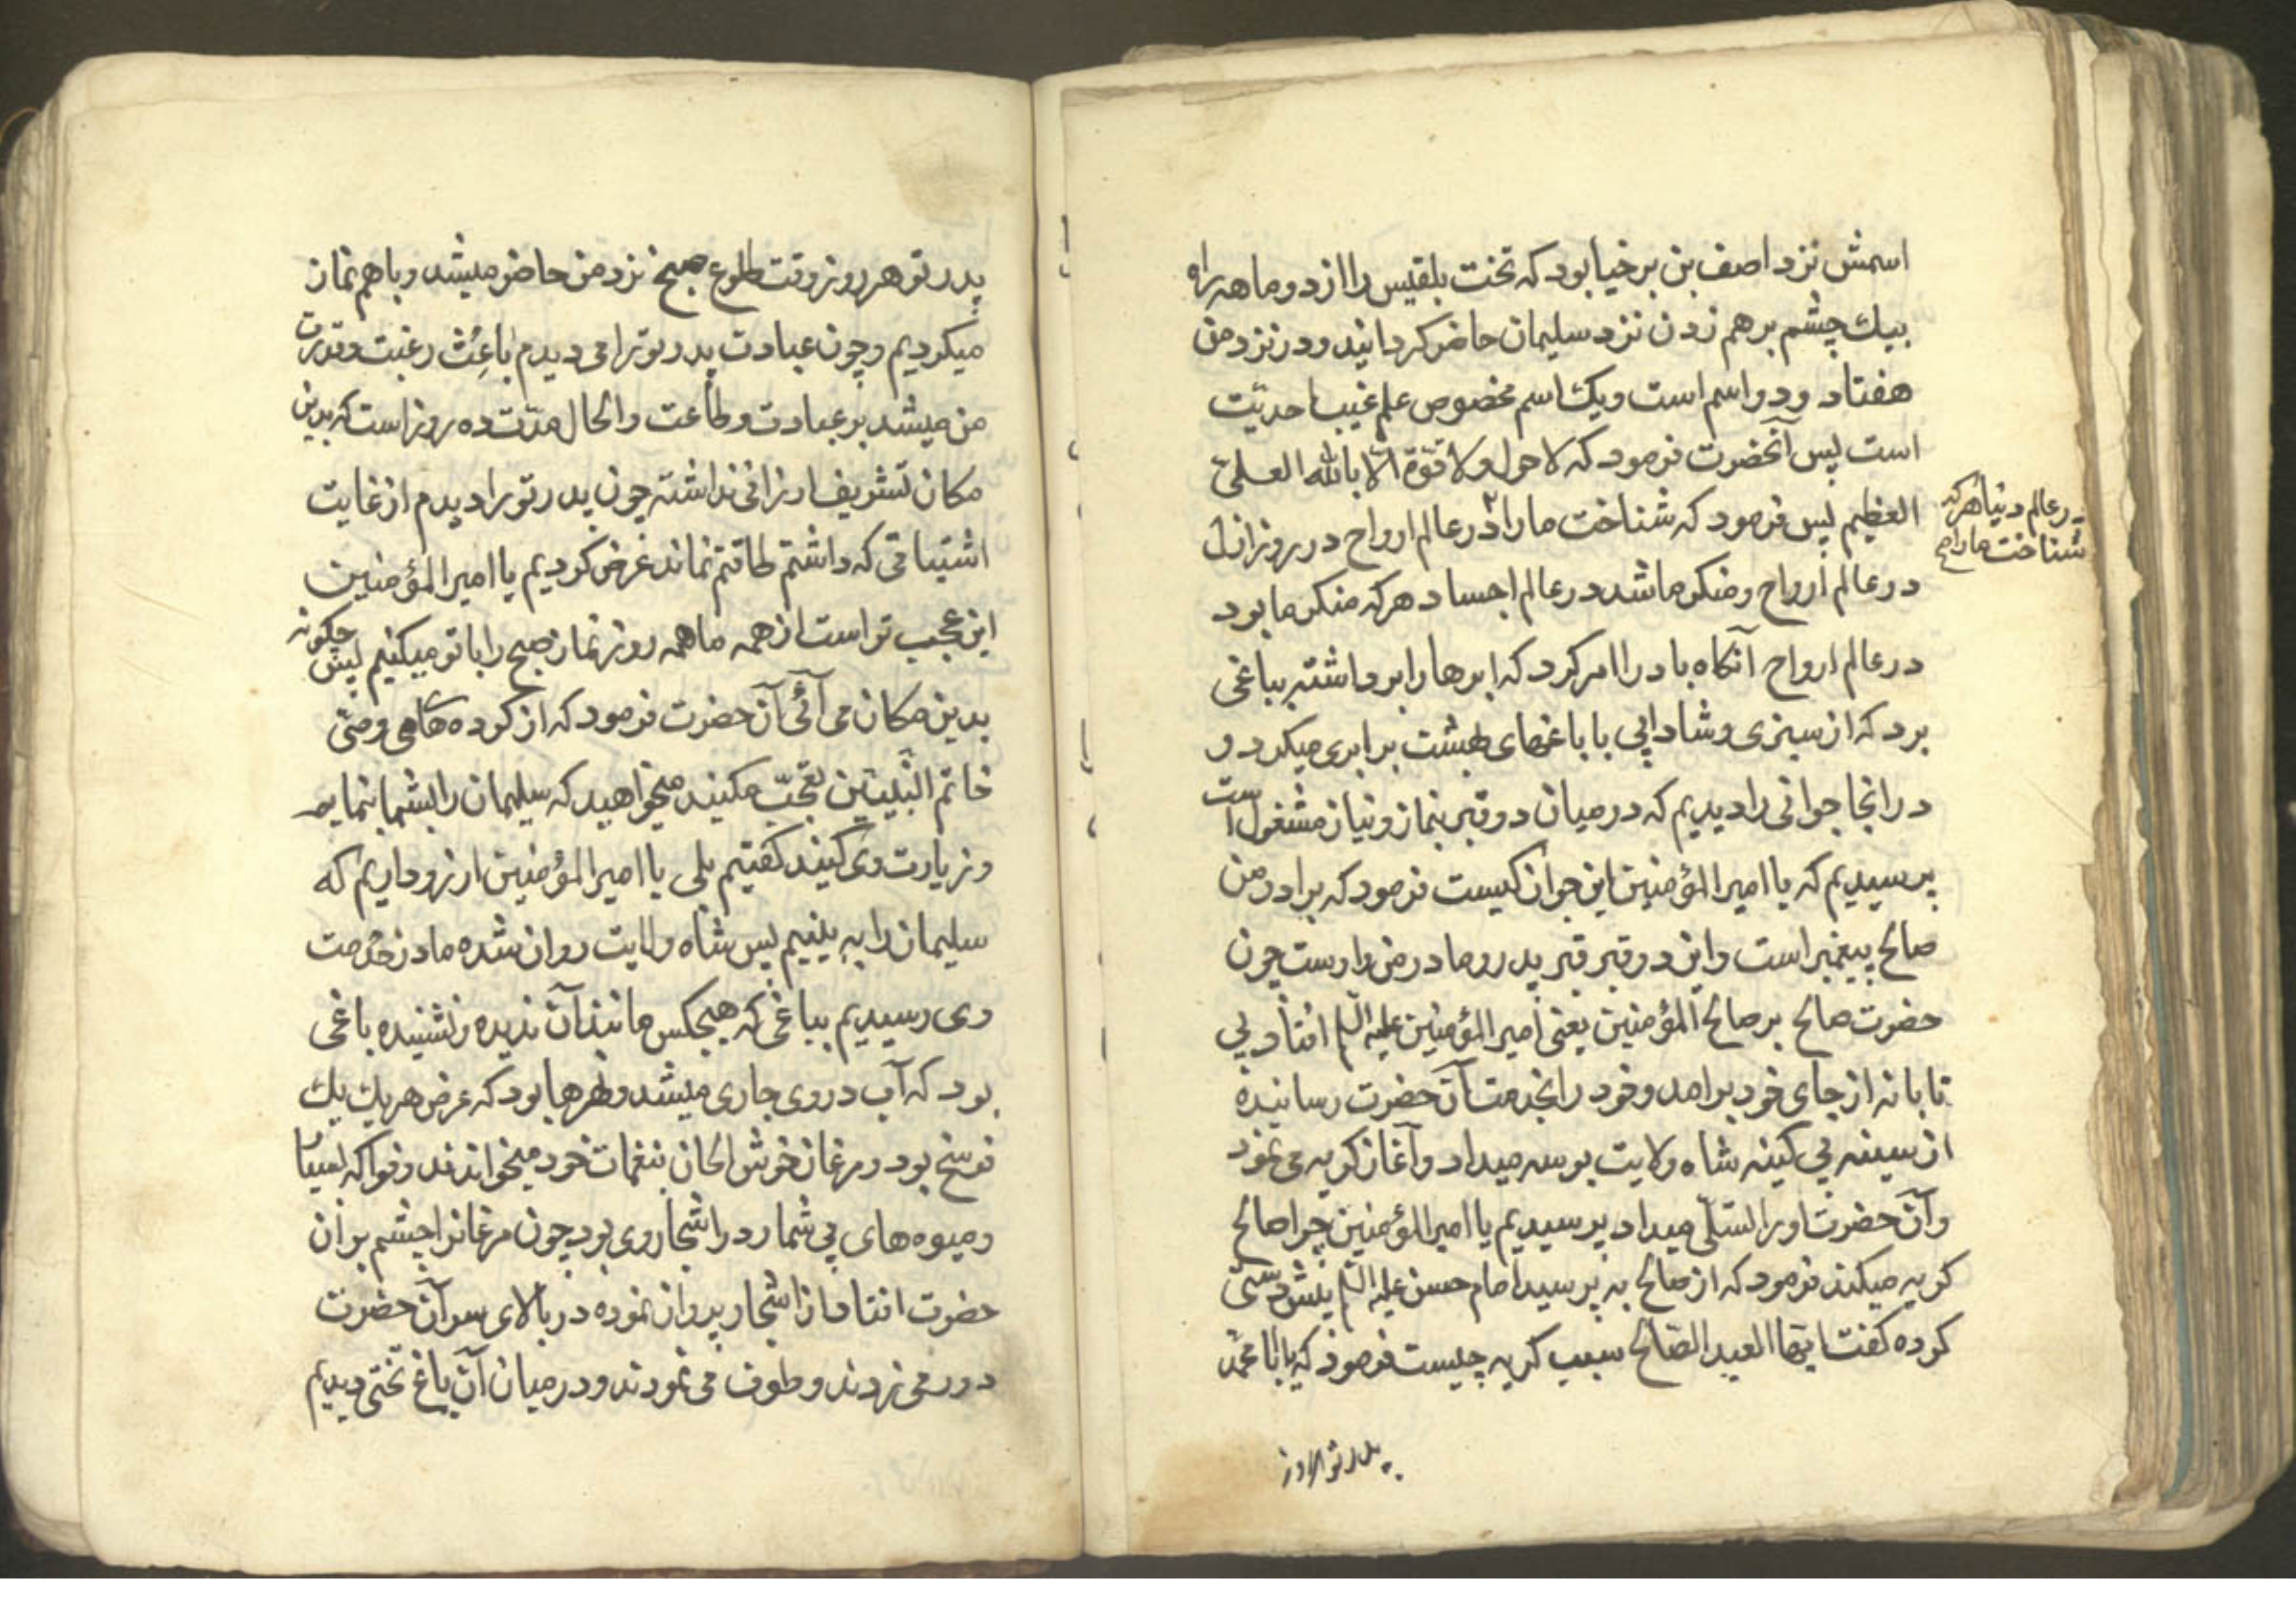 اسمش نزد اصف بن برخیا بود که تخت بلقیس را از دو ماهه راه
بیک چشم برهم زدن نزد سلیمان حاضر کردانید و در نزد من
هفتاد و دو اسم است و یک اسم مخصوص علم غیب احدیت
است پس آنحضرت فرمود که لا حول ولا قوة الا بالله العلی
العظیم پس فرمود که شناخت ما را در عالم ارواح در روز ازل
در عالم دنیا هرکه
شناخت ما را صح
در عالم ارواح و منکر ما شد در عالم اجساد هرکه منکر ما بود
در عالم ارواح آنکاه باد را امر کرد که ابرها را برداشته بباغی
برد که از سبزی و شادابی با باغهای بهشت برابری میکرد و
در انجا جوانی را دیدیم که در میان دو قبر بنماز و نیاز مشغول است
پرسیدیم که یا امیرالمؤمنین این جوان کیست فرمود که برادر من
صالح پیغمبر است و این دو قبر قبر پدر و مادر من و ارست چون
حضرت صالح بر صالح المؤمنین یعنی امیرالمؤمنین علیه السلم افتاد بی
تابانه از جای خود برامد و خود را بخدمت آن حضرت رسانیده
از سینه بی کینه شاه ولایت بوسه میداد و آغاز کریه می نمود
و آن حضرت او را تسلّی میداد پرسیدیم یا امیرالمؤمنین چرا صالح
کریه میکند فرمود که از صالح به پرسید امام حسن علیه السلم پیش دستی
کرده کفت ایها العبد الصالح سبب کریه چیست فرمود که یا ابا محمد
پدر تو هر روز
پدر تو هر روز وقت طلوع صبح نزد من حاضر میشد و با هم نماز
میکردیم و چون عبادت پدر تو را می دیدم باعث رغبت و قدرت
من میشد بر عبادت و طاعت و الحال مدّت ده روز است که بدین
مکان تشریف ارزانی نداشته چون پدر تو را دیدم از غایت
اشتیاقی که داشتم طاقتم نماند عرض کردیم یا امیرالمؤمنین
این عجب تر است از همه ما همه روز نماز صبح را با تو میکنیم پس چکونه
بدین مکان می آئی آن حضرت فرمود که از کرده های وصیّ
خاتم النّبیّین تعجّب مکنید میخواهید که سلیمان را بشما بنمایم
و زیارت وی کنید کفتیم بلی یا امیرالمؤمنین ارزو داریم که
سلیمان را به بینیم پس شاه ولایت روان شده ما در خدمت
وی رسیدیم بباغی که هیچکس مانند آن ندیده و نشنیده باغی
بود که آب در وی جاری میشد و نهرها بود که عرض هر یک یک
فرسخ بود و مرغان خوش الحان بنغمات خود میخواندند و فواکه بسیار
و میوه های بی شمار در اشجار وی بود چون مرغانرا چشم بر آن
حضرت افتاد از اشجار پرواز نموده در بالای سر آن حضرت
دور می زدند و طوف می نمودند و در میان آن باغ تختی دیدیم